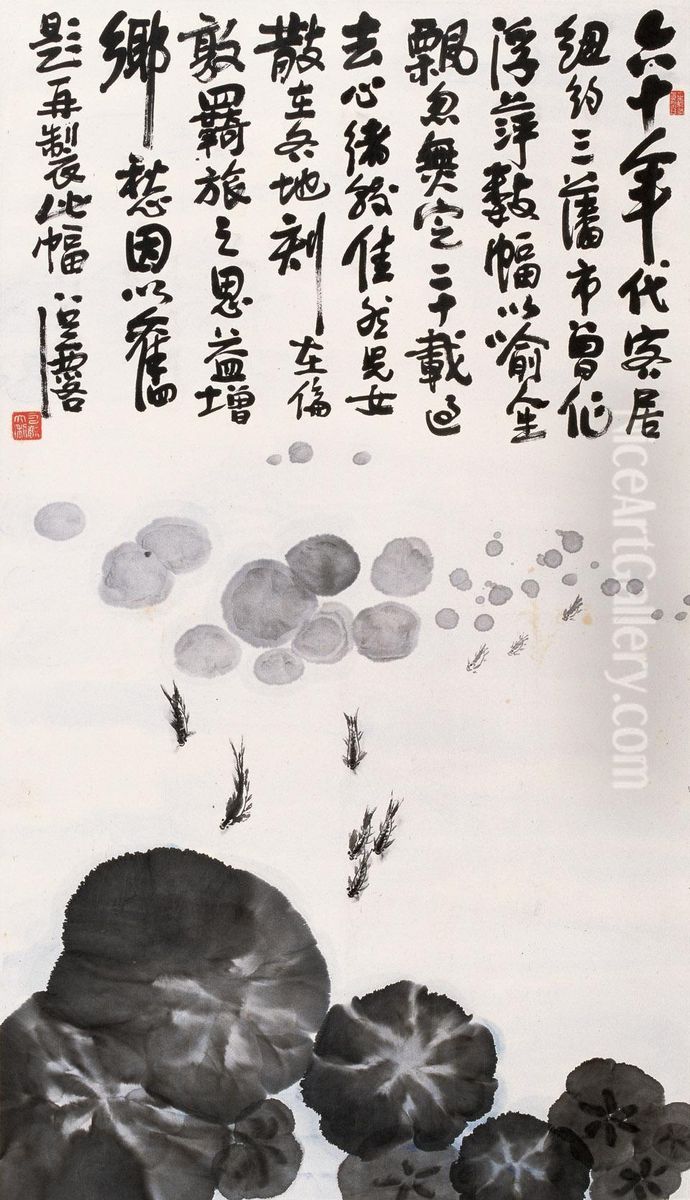 六十年代客居
紐約三藩市曾作
浮萍數幅以喻人生
飄忽無定二十載過
去心緒較佳然兒女
散在各地刻在倫
敦羈旅之思益增
鄉愁因以舊
題再製此幅 呂無咎
NiceArtGallery.com